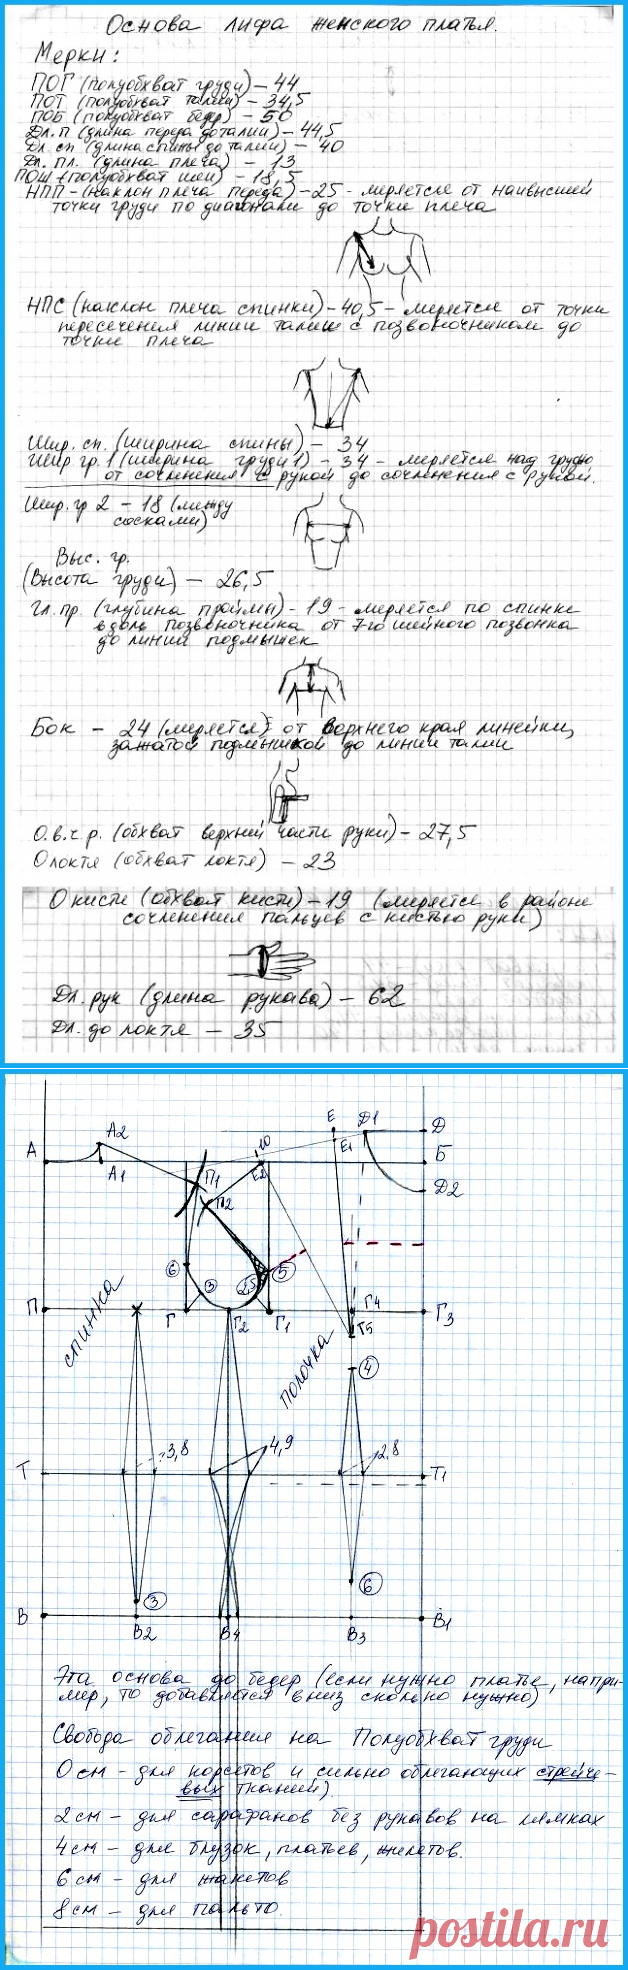 Основа лифа женского платья.
Мерки:
ПОГ (полуобхват груди) – 44
ПОТ (полуобхват талии) – 34,5
ПОБ (полуобхват бедер) – 50
Дл. п (длина переда до талии) – 44,5
Дл. сп. (длина спины до талии) – 40
Дл. пл. (длина плеча) – 13
ПОШ – (полуобхват шеи) – 18,5
НПП – (наклон плеча переда) – 25 – меряется от наивысшей
точки груди по диагонали до точки плеча
НПС (наклон плеча спинки) – 40,5 – меряется от точки
пересечения линии талии с позвоночником до
точки плеча
Шир. сп. (ширина спины) – 34
Шир гр. 1 (ширина груди 1) – 34 – меряется над грудью
от сочленения с рукой до сочленения с рукой.
Шир. гр 2 – 18 (между
сосками)
Выс. гр.
(высота груди) – 26,5
Гл. пр. (глубина проймы) – 19 – меряется по спинке
вдоль позвоночника от 7-го шейного позвонка
до линии подмышек
Бок – 24 (меряется) от верхнего края линейки,
зажатой подмышкой до линии талии
О.в.ч.р. (обхват верхней части руки) – 27,5
О локтя (обхват локтя) – 23
О кисти (обхват кисти) – 19 (меряется в районе
сочленения пальцев с кистью руки)
Дл. рук (длина рукава) – 62
Дл. до локтя – 35
А2 Е Д1 Д
А А1 П1 10 Е2 Е1 Б
П2 Д2
6 3 2,5 5
П Г Г2 Г1 Г4 Г3
Г5
спинка
полочка
4
3,8 4,9 2,8
Т Т1
3 6
В В2 В4 В3 В1
Эта основа до бедер (если нужно платье, напри-
мер, то добавляется вниз сколько нужно)
Свобода облегания на Полуобхват груди
0 см – для корсетов и сильно облегающих стрейче-
вых тканей).
2 см – для сарафанов без рукавов на лямках
4 см – для блузок, платьев, жилетов.
6 см – для жакетов
8 см – для пальто.
postila.ru